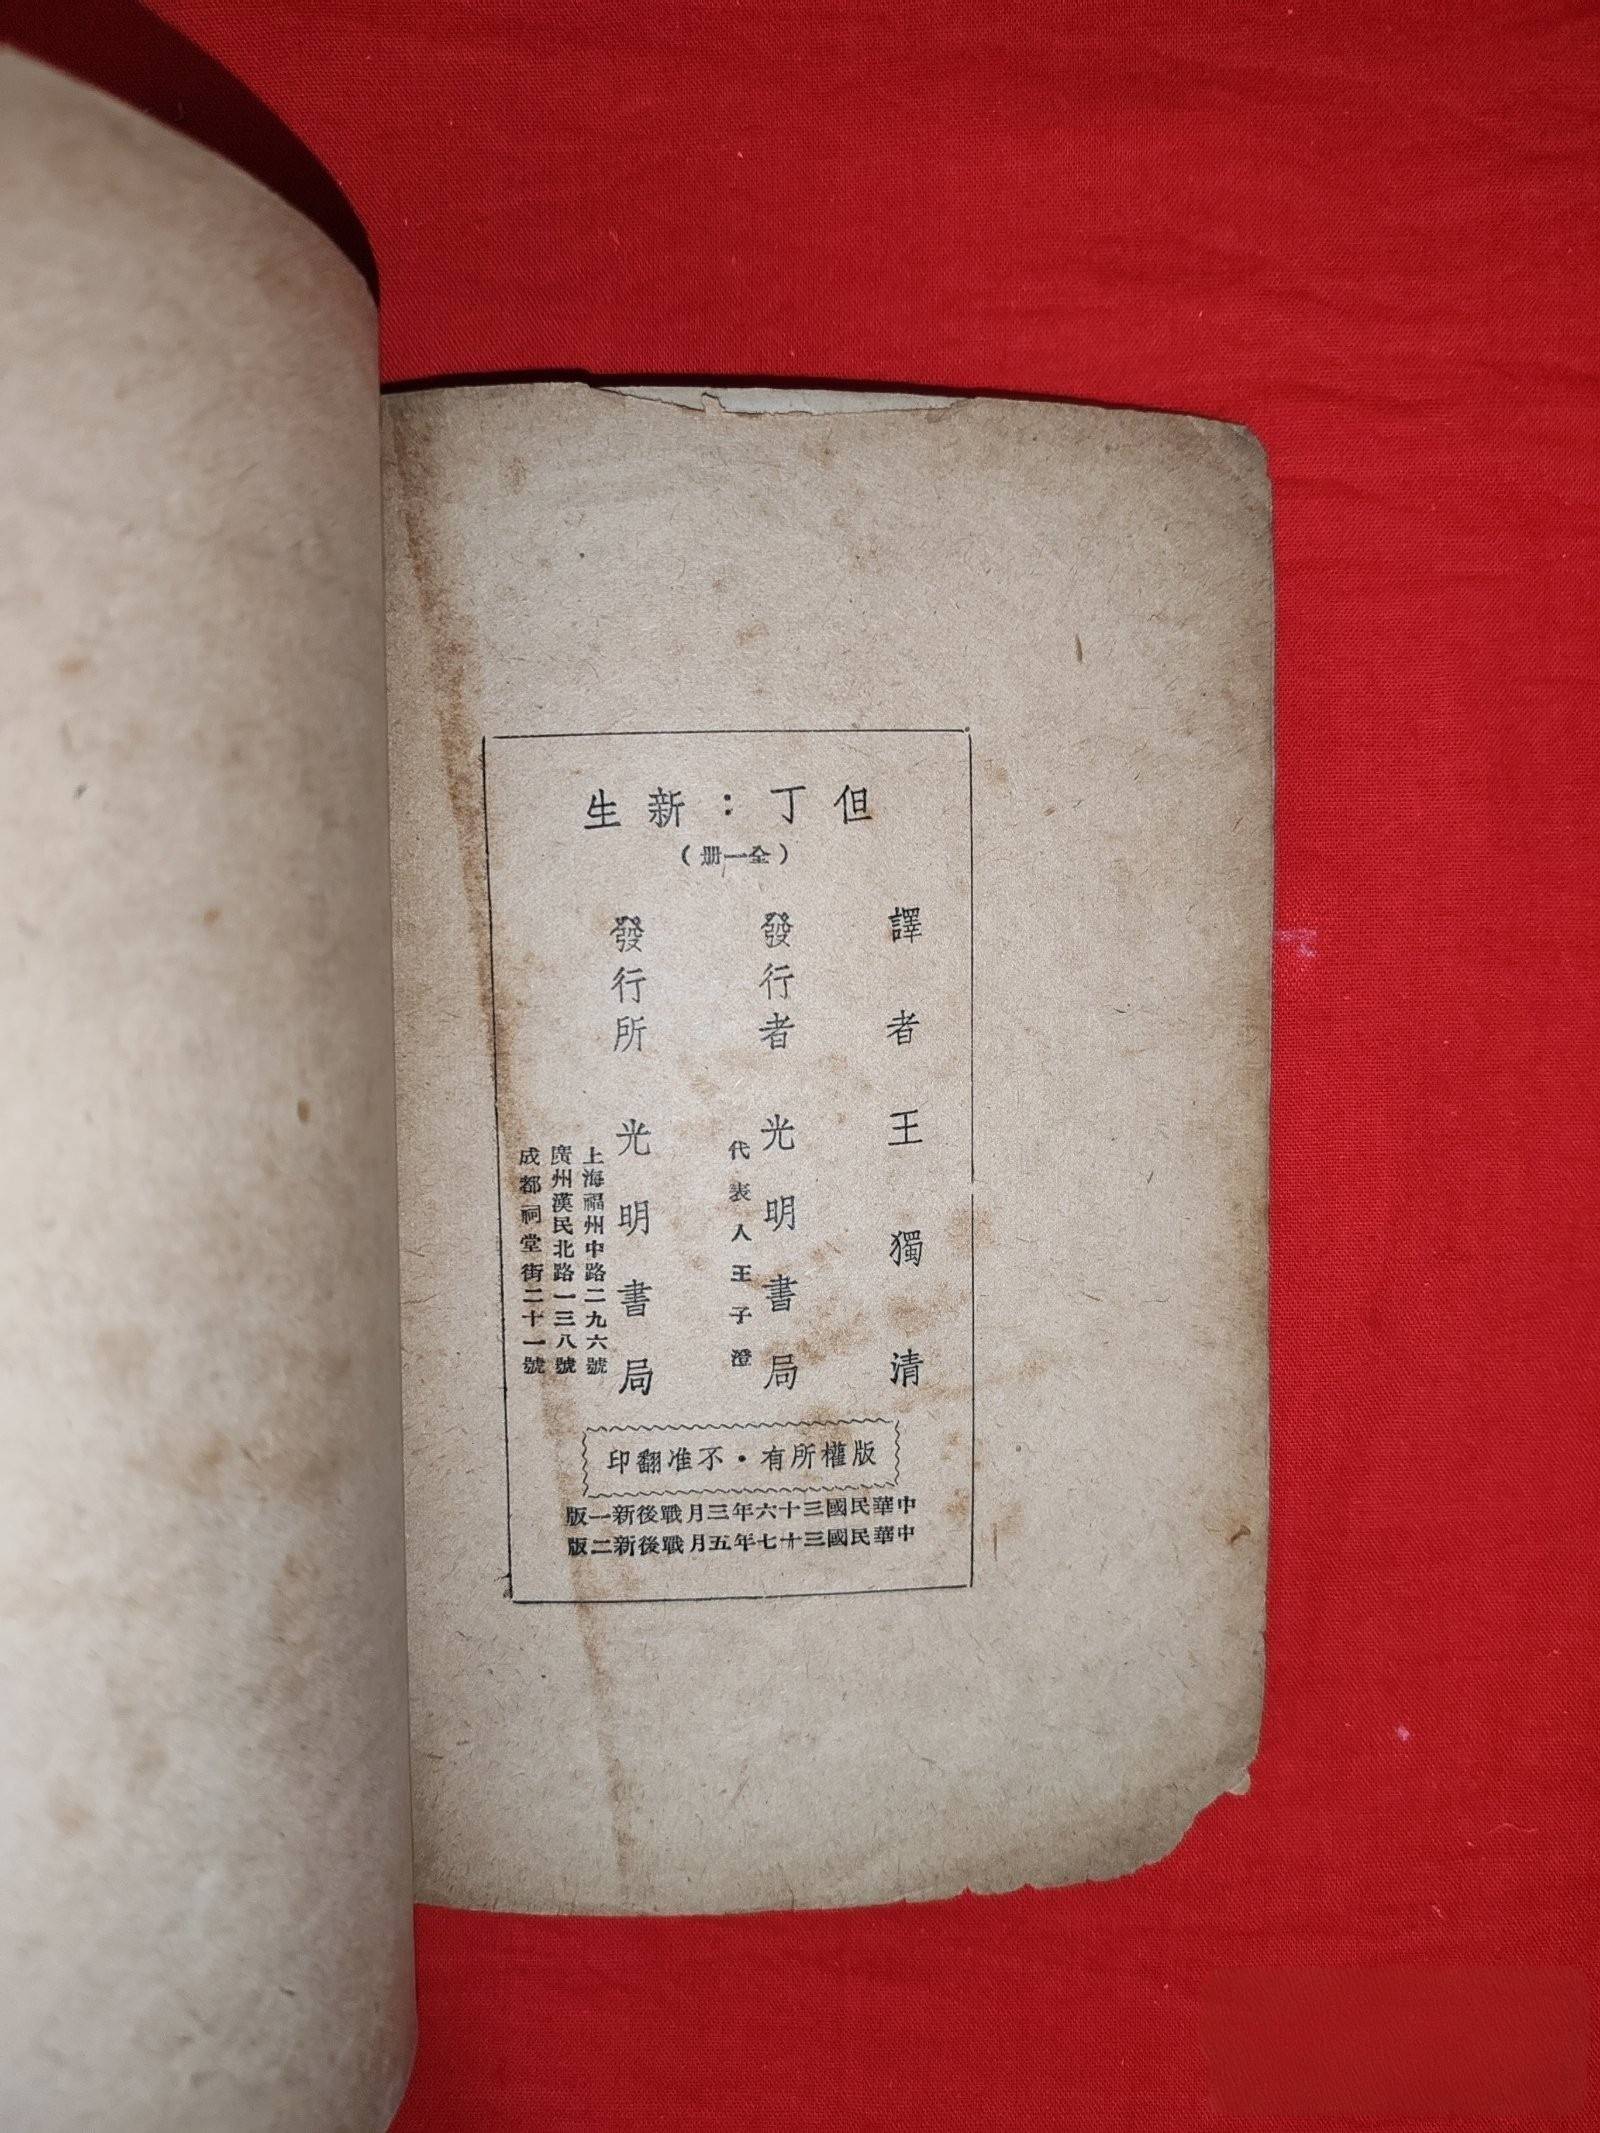 但丁：新生
（全一册）
譯者 王獨清
發行者 光明書局
代表人王子澄
發行所 光明書局
上海福州中路二九六號
廣州漢民北路一三八號
成都祠堂街二十一號
版權所有・不准翻印
中華民國三十六年三月戰後新一版
中華民國三十七年五月戰後新二版